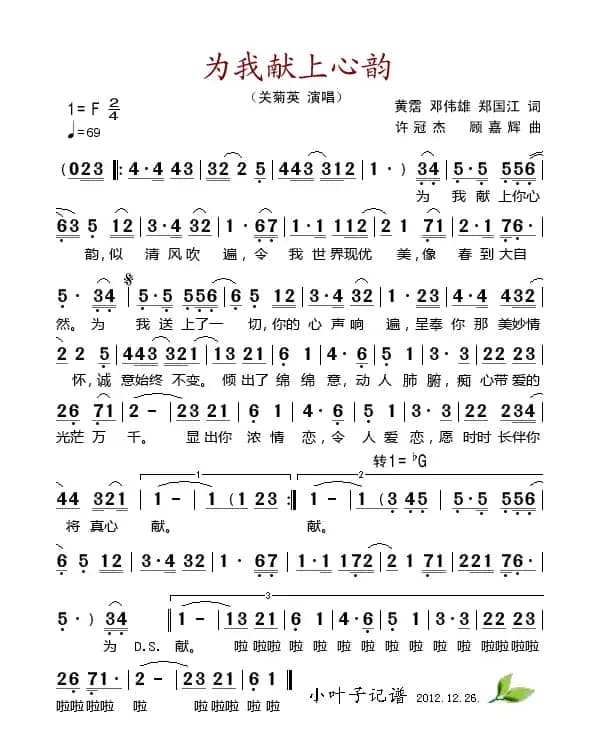 为我献上心韵
（关菊英 演唱）
1= F 2/4
♩=69
黄霑 邓伟雄 郑国江 词
许冠杰 顾嘉辉 曲
（023 ‖: 4·4 43 | 32 2 5 | 443 312 | 1· ） 34 | 5·5 556
为 我 献 上你心
63 5 12 | 3·4 32 | 1· 67 | 1·1 112 | 2 1 71 | 2·1 76·
韵,似 清 风吹 遍,令 我 世界现优 美,像 春 到大自
5· 34 | 5·5 556 | 6 5 12 | 3·4 32 | 1· 23 | 4·4 432
然。为 我 送 上了一 切,你的 心 声响 遍,呈奉 你 那 美妙情
2 2 5 | 443 321 | 13 21 | 6 1 | 4· 5 | 3· 12 | 22 23
怀,诚 意始终 不变。 倾 出了 绵 绵 意,动 人 肺 腑,痴 心带 爱的
26 71 | 2 - | 23 21 | 6 1 | 4 5 | 3· 12 | 22 234
光茫 万 千。 显 出你 浓 情 恋,令 人 爱 恋,愿 时时 长伴你
转1=♭G
1
2
44 321 | 1 - | 1（1 23 :‖ 1 - | 1（3 45 | 5·5 556
将 真心 献。 献。
6 5 12 | 3·4 32 | 1· 67 | 1112 172 | 2 1 71 | 221 76·
3
5· ） 34 ‖ 1 - | 13 21 | 6 1 | 4· 65 | 5 1 | 3 12 | 22 23
为 D.S. 献。 啦 啦啦 啦 啦 啦 啦啦 啦 啦 啦 啦啦 啦啦啦啦
26 71· | 2 - | 23 21 | 6 1 |
啦啦啦啦 啦 啦啦啦啦 啦 啦
小叶子记谱 2012.12.26.